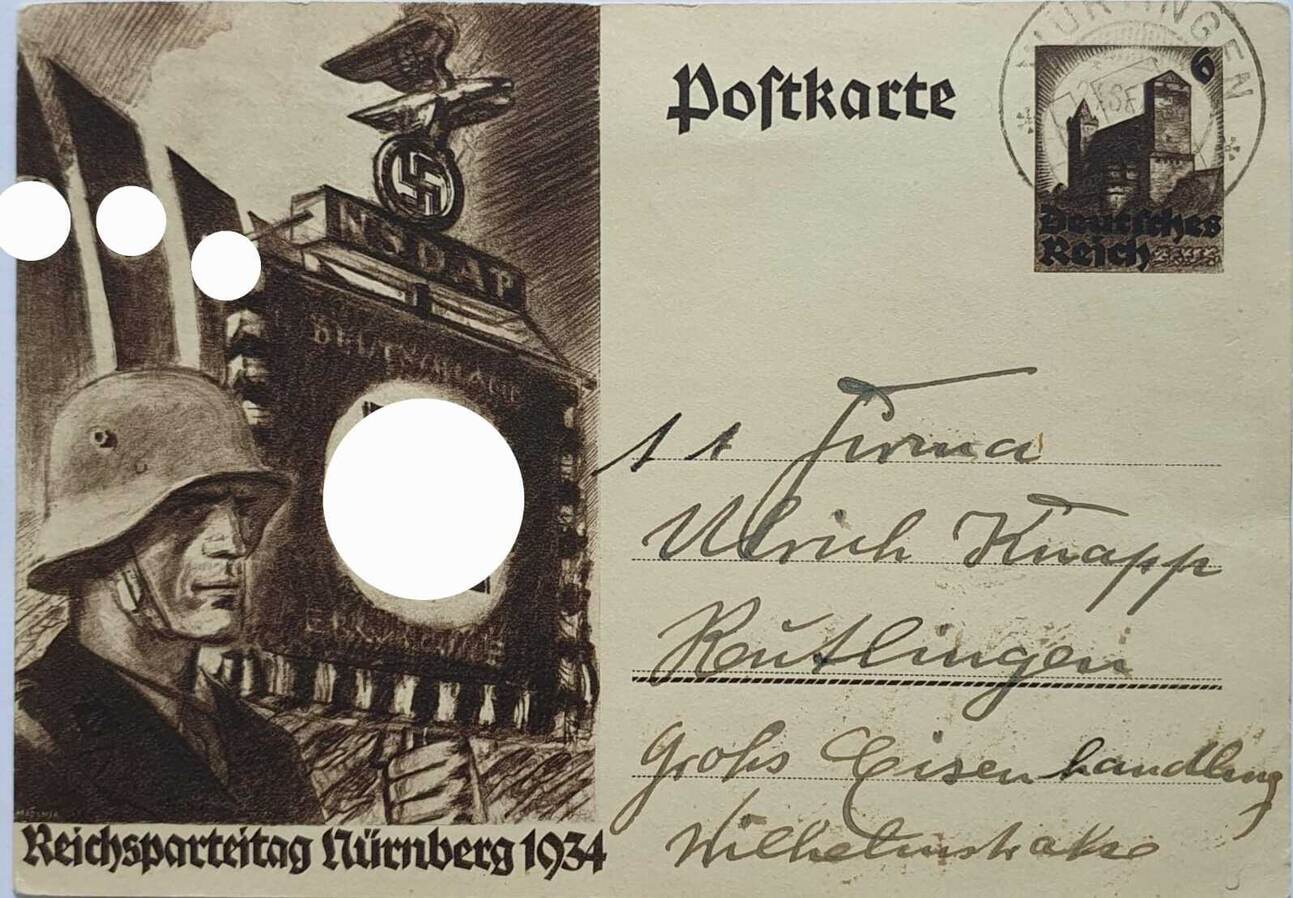 NSDAP
DEUTSCHLAND
Reichsparteitag Nürnberg 1934
Postkarte
NÜRTINGEN
6
Deutsches
Reich
Firma
Ulrich Knapp
Reutlingen
Groß Eisenhandlung
Wilhelmstraße